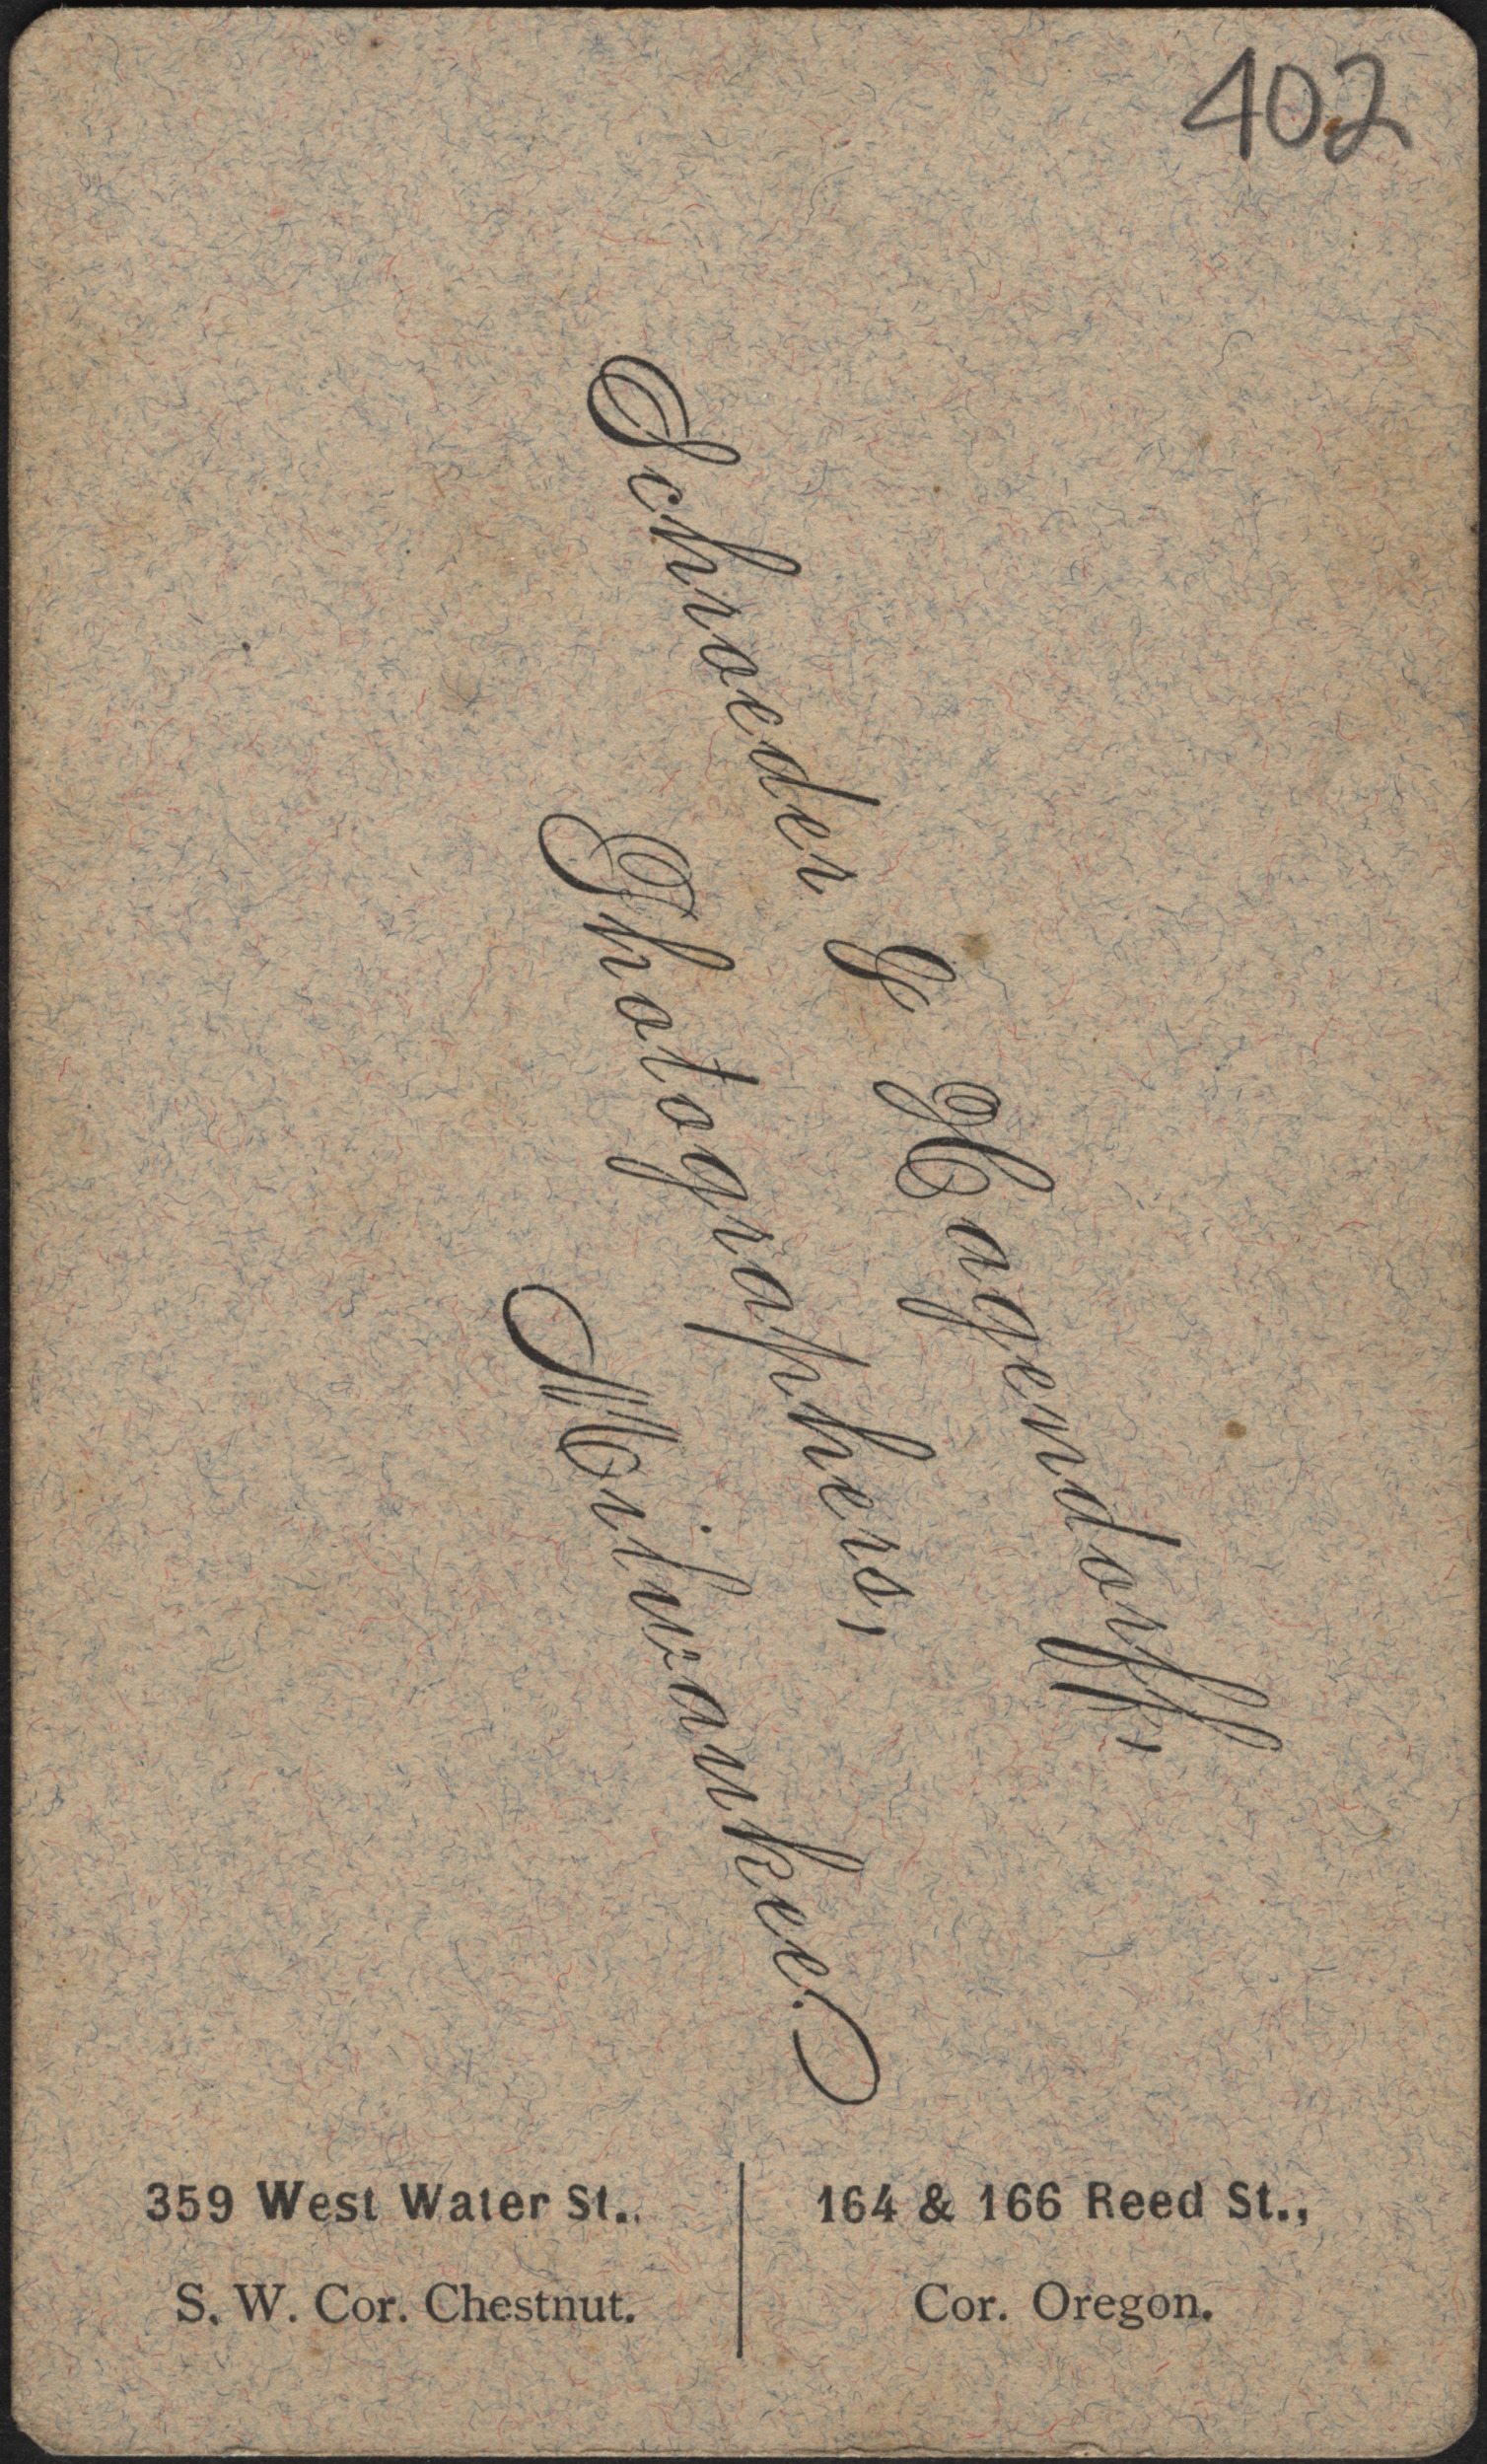 402
Schroeder & Hagendorff,
Photographers,
Milwaukee.
359 West Water St.,
S. W. Cor. Chestnut.
164 & 166 Reed St.,
Cor. Oregon.